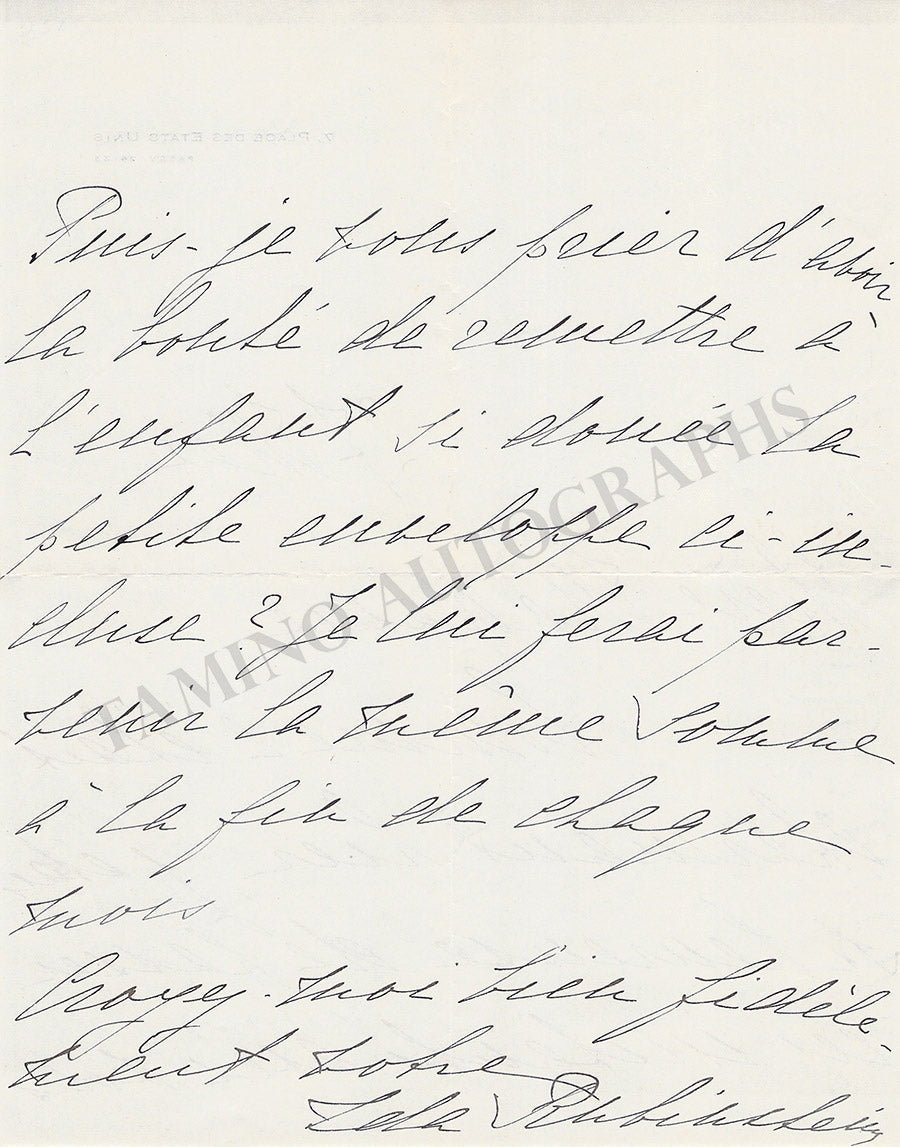 7, PLACE DES ETATS UNIS
Puis-je vous prier d'avoir
la bonté de remettre à
l'enfant si douée la
petite enveloppe ci-in-
cluse? Je lui ferai par-
venir la même somme
à la fin de chaque
mois
Croyez-moi bien fidèle-
ment votre
Ida Rubinstein
TAMINO AUTOGRAPHS